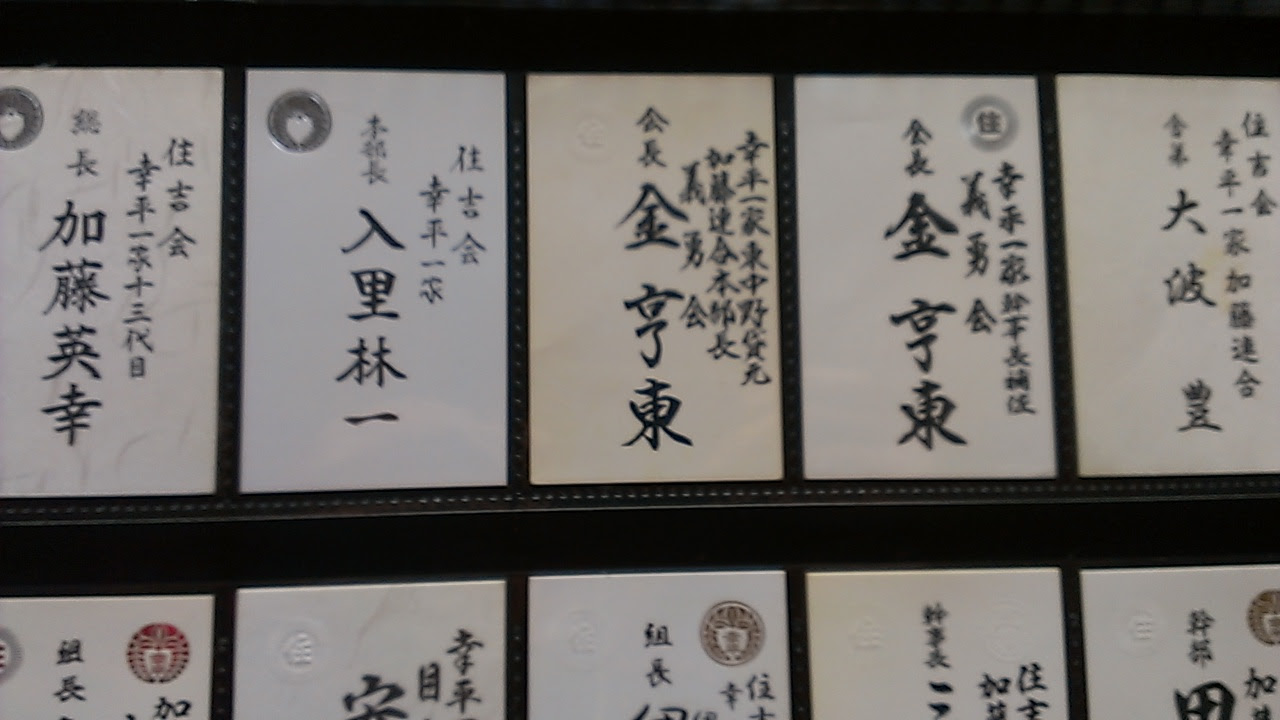 住吉会
幸平一家十三代目
総長
加藤英幸
住吉会
幸平一家
本部長
入里林一
幸平一家東中野貸元
加藤連合本部長
義勇会
会長
金亨東
住
幸平一家幹事長補佐
義勇会
会長
金亨東
住吉会
幸平一家加藤連合
舎弟
大波豊
組長
加
住
幸平
目
組長
住
幸
住
幹事長
住吉
加
幹部
加
田